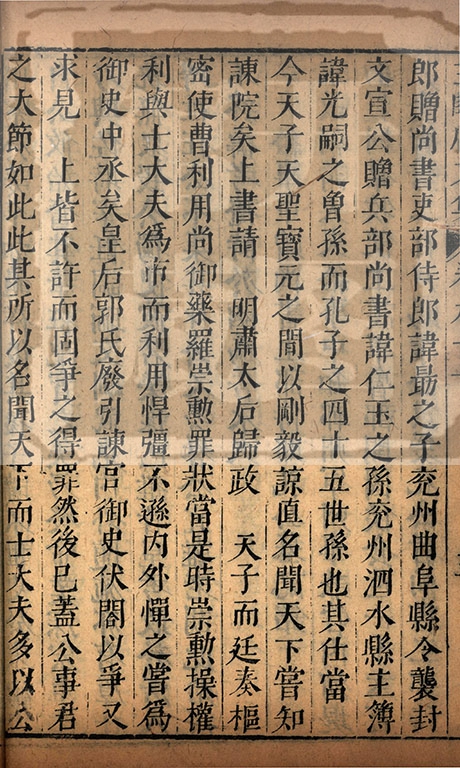 郎贈尚書吏部侍郎諱勗之子兖州曲阜縣令襲封
文宣公贈兵部尚書諱仁玉之孫兖州泗水縣主簿
諱光嗣之曾孫而孔子之四十五世孫也其仕當
今天子天聖寶元之間以剛毅諒直名聞天下嘗知
諫院矣上書請 明肅太后歸政 天子而廷奏樞
密使曹利用尚御藥羅崇勲罪狀當是時崇勲操權
利與士大夫爲市而利用悍彊不遜内外憚之嘗爲
御史中丞矣皇后郭氏廢引諫官御史伏閤以爭又
求見 上皆不許而固爭之得罪然後已蓋公事君
之大節如此此其所以名聞天下而士大夫多以公